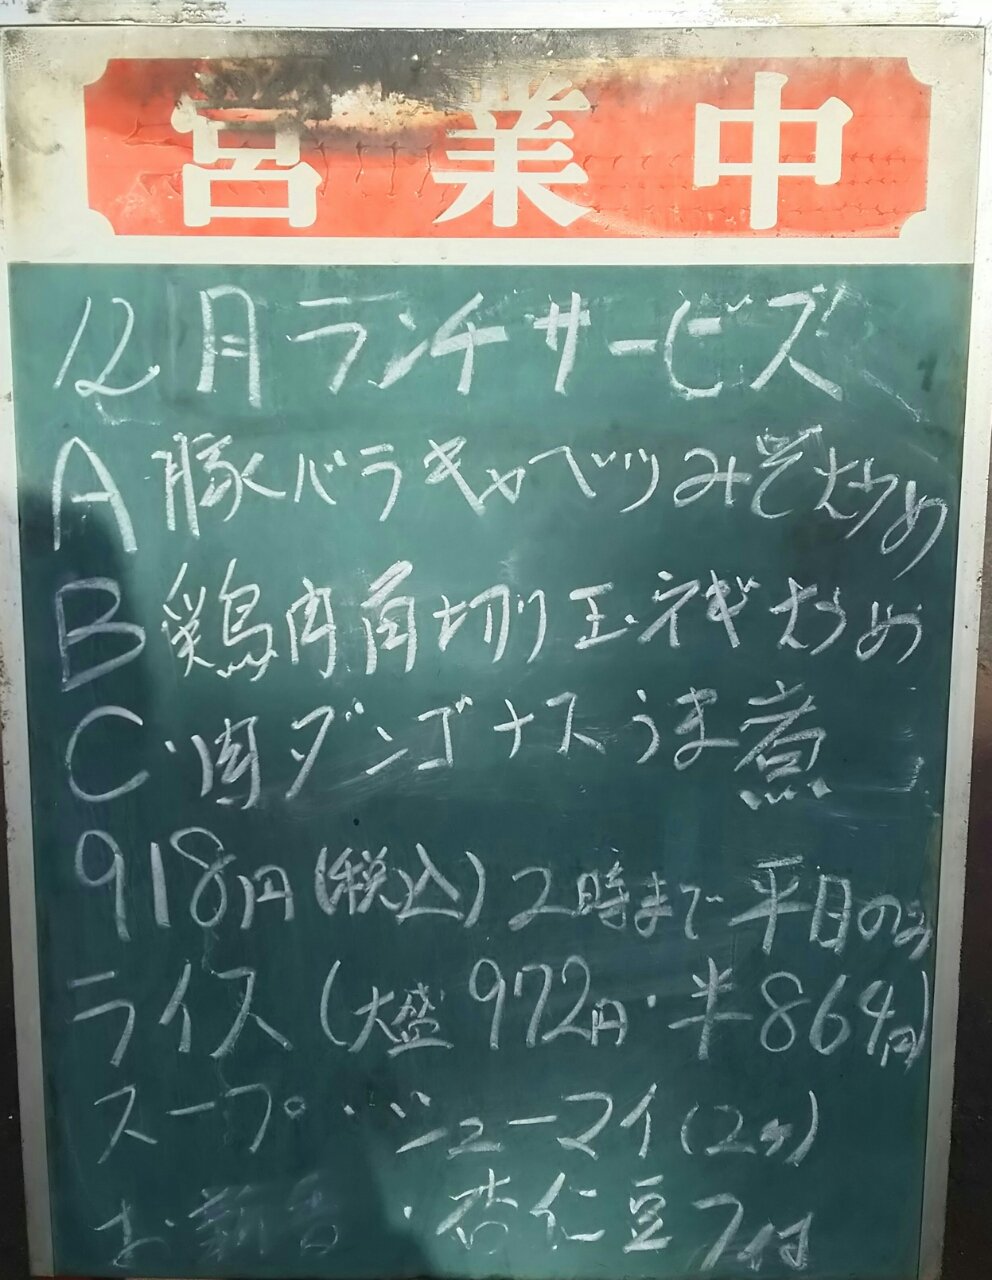 営業中
12月ランチサービス
A 豚バラキャベツみそ炒め
B 鶏肉角切り玉ネギ炒め
C 肉ダンゴナスうま煮
918円(税込)2時まで平日のみ
ライス(大盛972円・半864円)
スープ・シューマイ(2ケ)
お新香・杏仁豆フ付